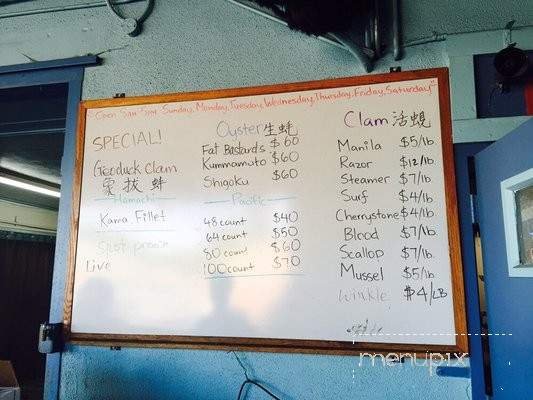 Open 5am 5pm Sunday, Monday, Tuesday, Wednesday, Thursday, Friday, Saturday
SPECIAL!
Geoduck Clam
象拔蚌
Hamachi
Kama Fillet
Spot prawn
Live
Oyster 生蚝
Fat Bastards $60
Kummamoto $60
Shigoku $60
Pacific
48 count $40
64 count $50
80 count $60
100 count $70
Clam 活蜆
Manila $5/lb
Razor $12/lb
Steamer $7/lb
Surf $4/lb
Cherrystone $4/lb
Blood $7/lb
Scallop $7/lb
Mussel $5/lb
Winkle $4/LB
menupix